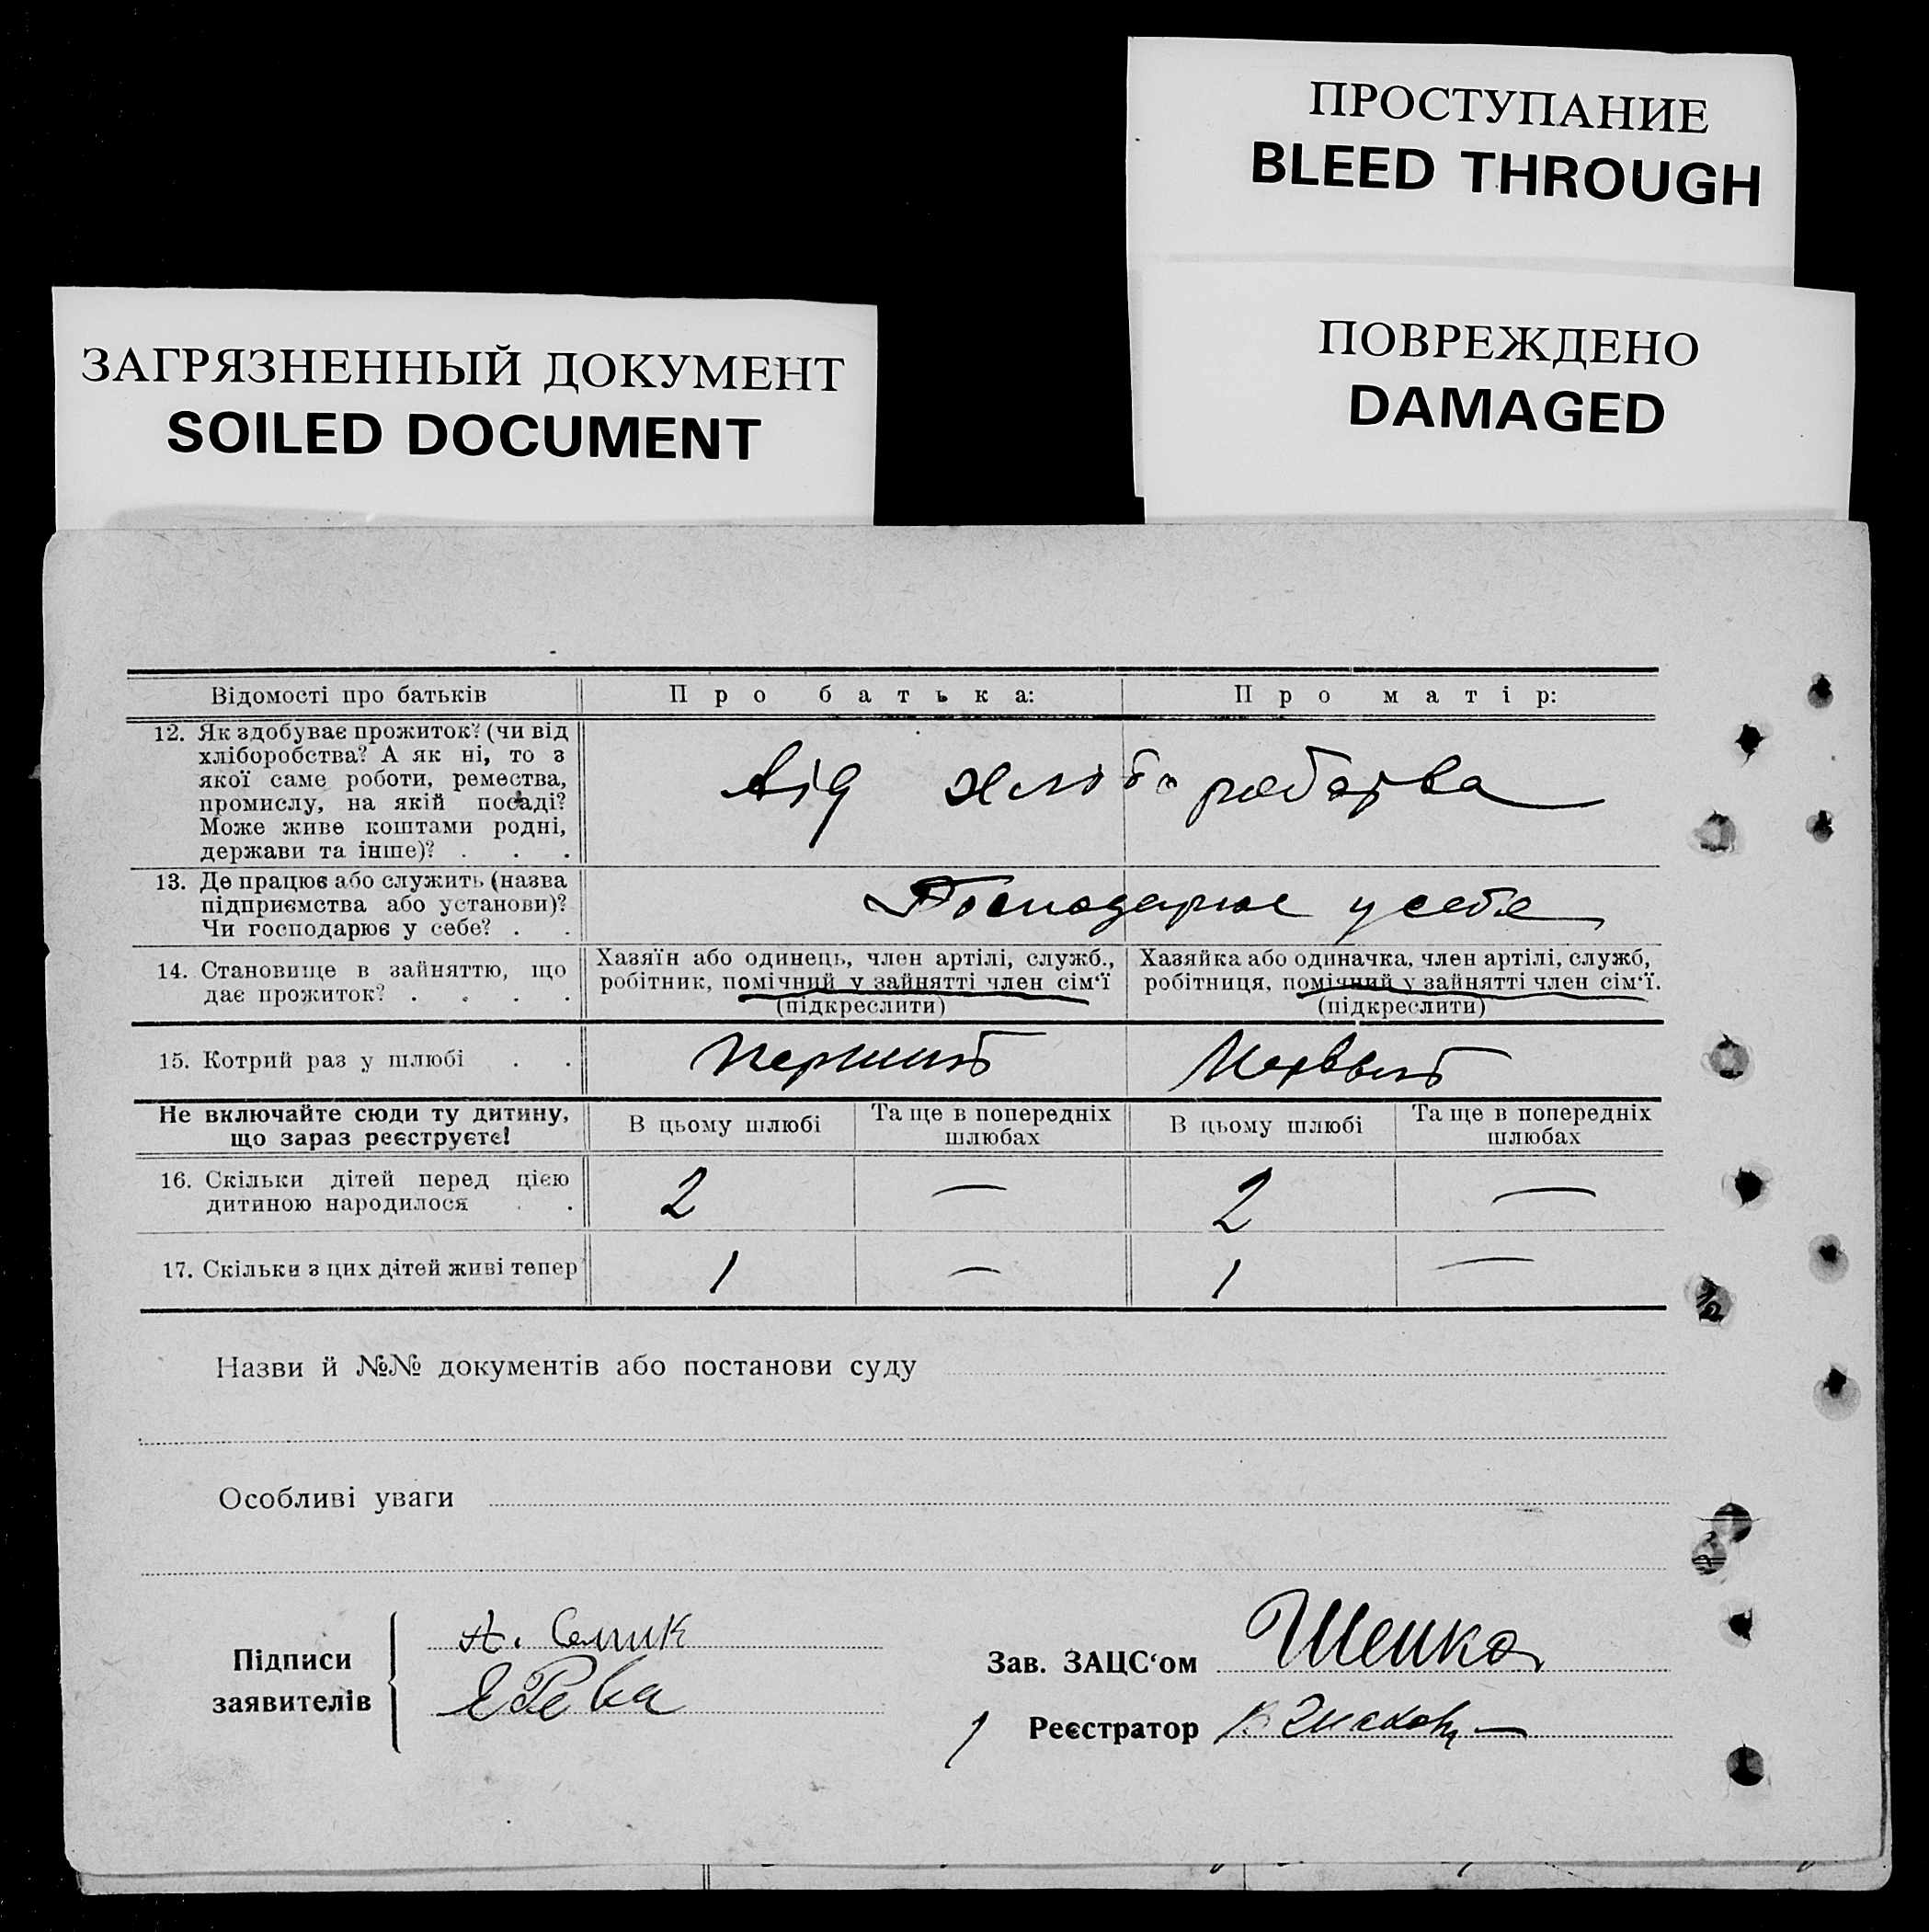 ПРОСТУПАНИЕ
BLEED THROUGH
ПОВРЕЖДЕНО
DAMAGED
ЗАГРЯЗНЕННЫЙ ДОКУМЕНТ
SOILED DOCUMENT
Відомості про батьків
Про батька:
Про матір:
12. Як здобуває прожиток? (чи від
хліборобства? А як ні, то з
якої саме роботи, ремества,
промислу, на якій посаді?
Може живе коштами родні,
держави та інше)? . . .
від хліборобства
13. Де працює або служить (назва
підприємства або установи)?
Чи господарює у себе? . .
Господарює у себе
14. Становище в зайняттю, що
дає прожиток? . . . .
Хазяїн або одинець, член артілі, служб.,
робітник, помічний у зайнятті член сім‘ї
(підкреслити)
Хазяйка або одиначка, член артілі, служб,
робітниця, помічний у зайнятті член сім‘ї.
(підкреслити)
15. Котрий раз у шлюбі . .
Перший
Не включайте сюди ту дитину,
що зараз реєструєте!
В цьому шлюбі
Та ще в попередніх
шлюбах
В цьому шлюбі
Та ще в попередніх
шлюбах
16. Скільки дітей перед цією
дитиною народилося . .
2 — 2 —
17. Скільки з цих дітей живі тепер
1 — 1 —
Назви й №№ документів або постанови суду
Особливі уваги
Підписи
заявителів
А.
Е Рева
Зав. ЗАЦС‘ом
Реєстратор